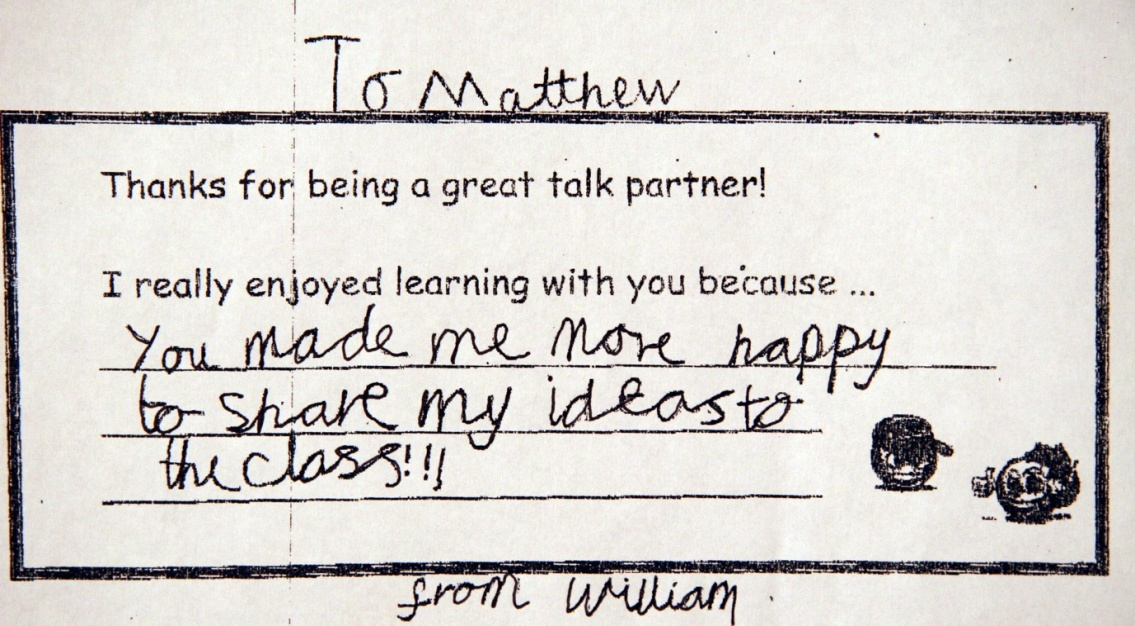 To Matthew
Thanks for being a great talk partner!
I really enjoyed learning with you because ...
You made me more happy
to share my ideas to
the class!!!
from William